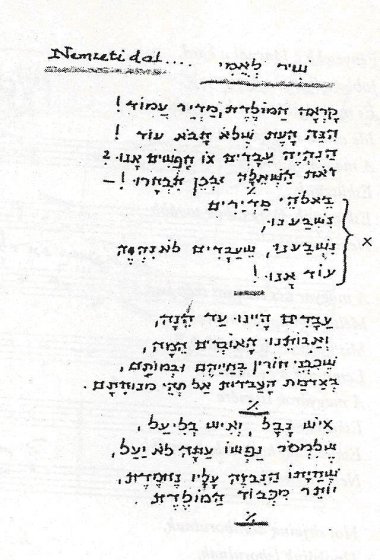 Nemzeti dal....
שִׁיר לְאֻמִּי
קָרְאָה הַמּוֹלֶדֶת, מַדְיַר עֲמוֹד !
הִנֵּה הָעֵת שֶׁלֹּא תָּבֹא עוֹד !
הֲנִהְיֶה עֲבָדִים אוֹ חָפְשִׁים אָנוּ ?
זֹאת הַשְּׁאֵלָה וּבְכֵן תִּבְחֲרוּ ! –
בֵּאלֹהֵי מַדְיָרִים
נִשְׁבַּענוּ,
נִשְׁבַּענוּ, שֶׁעֲבָדִים לֹא נִהְיֶה
עוֹד אָנוּ !
x
עֲבָדִים הָיִינוּ עַד הֵנָּה,
וַאֲבוֹתֵינוּ הָאוֹבְדִים הֵמָּה,
שֶׁכִּבְנֵי חוֹרִין בְּחַיֵּיהֶם וּבְמוֹתָם,
בְּאַדְמַת הָעַבְדוּת אַל תְּהִי מְנוּחָתָם.
٪
אִישׁ נָבָל, וְאִישׁ בְּלִיַּעַל,
שֶׁלִּמְסֹר נַפְשׁוֹ עַתָּה לֹא יַעַל,
שֶׁחַיָּתוֹ הַנִּבְזָה עָלָיו נֶחְמֶדֶת,
יוֹתֵר מִכְּבוֹד הַמּוֹלֶדֶת.
٪